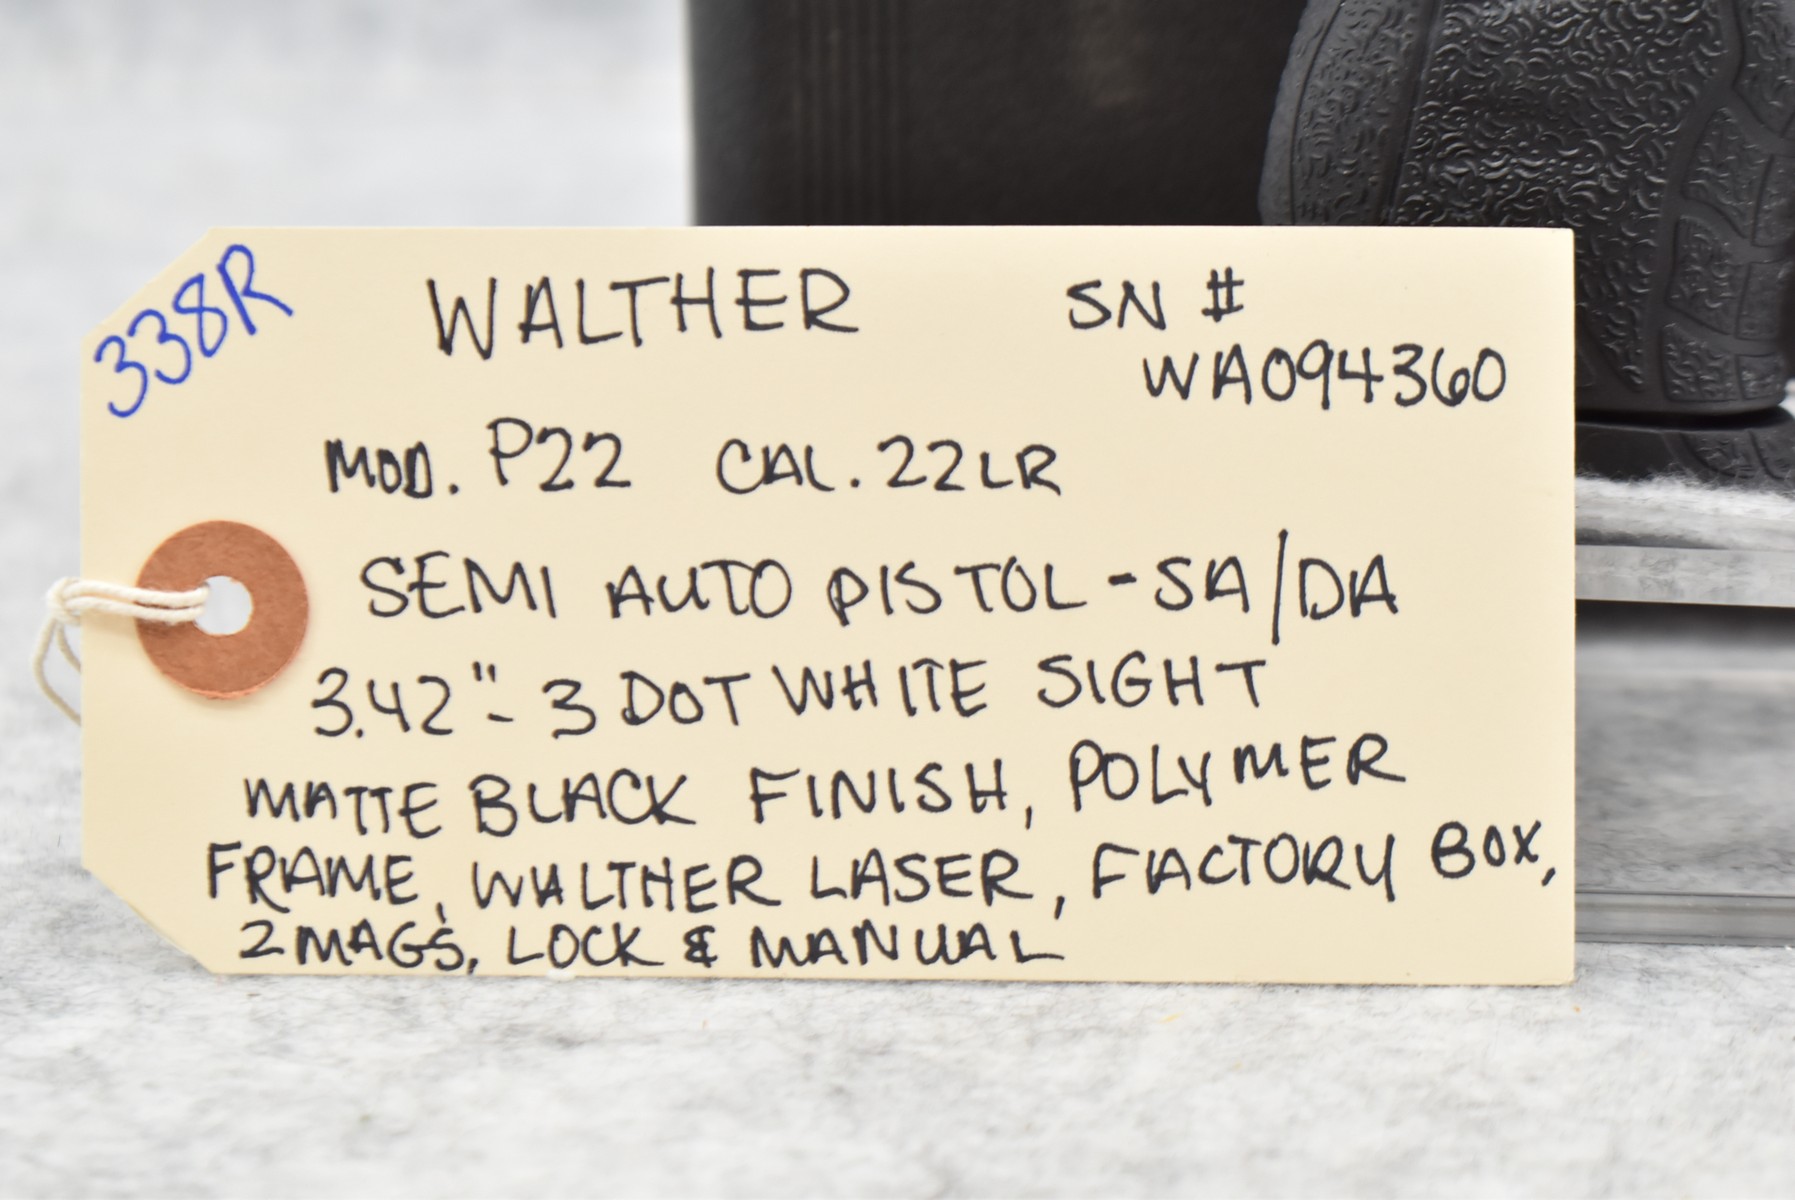 338R
WALTHER SN #
WA094360
MOD. P22 CAL. 22LR
SEMI AUTO PISTOL - SA/DA
3.42" - 3 DOT WHITE SIGHT
MATTE BLACK FINISH, POLYMER
FRAME, WALTHER LASER, FACTORY BOX,
2 MAGS, LOCK & MANUAL